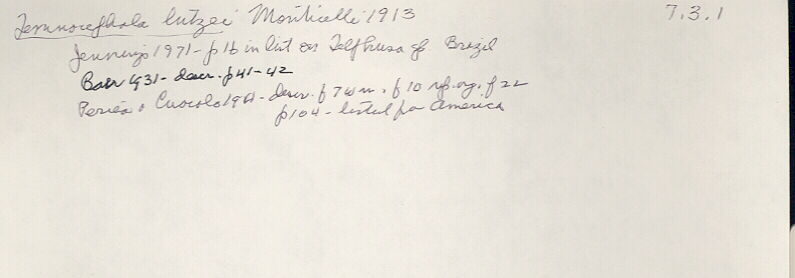 Temnocephala lutzei Monticelli 1913 7.3.1
Jennings 1971 - p16 in list on Telphusa of Brazil
Baer 1931 - descr. p41-42
Peréa & Cuocolo 194 - descr. f 7 wm. f 10 rep. org. f 22
p104 - listed for America